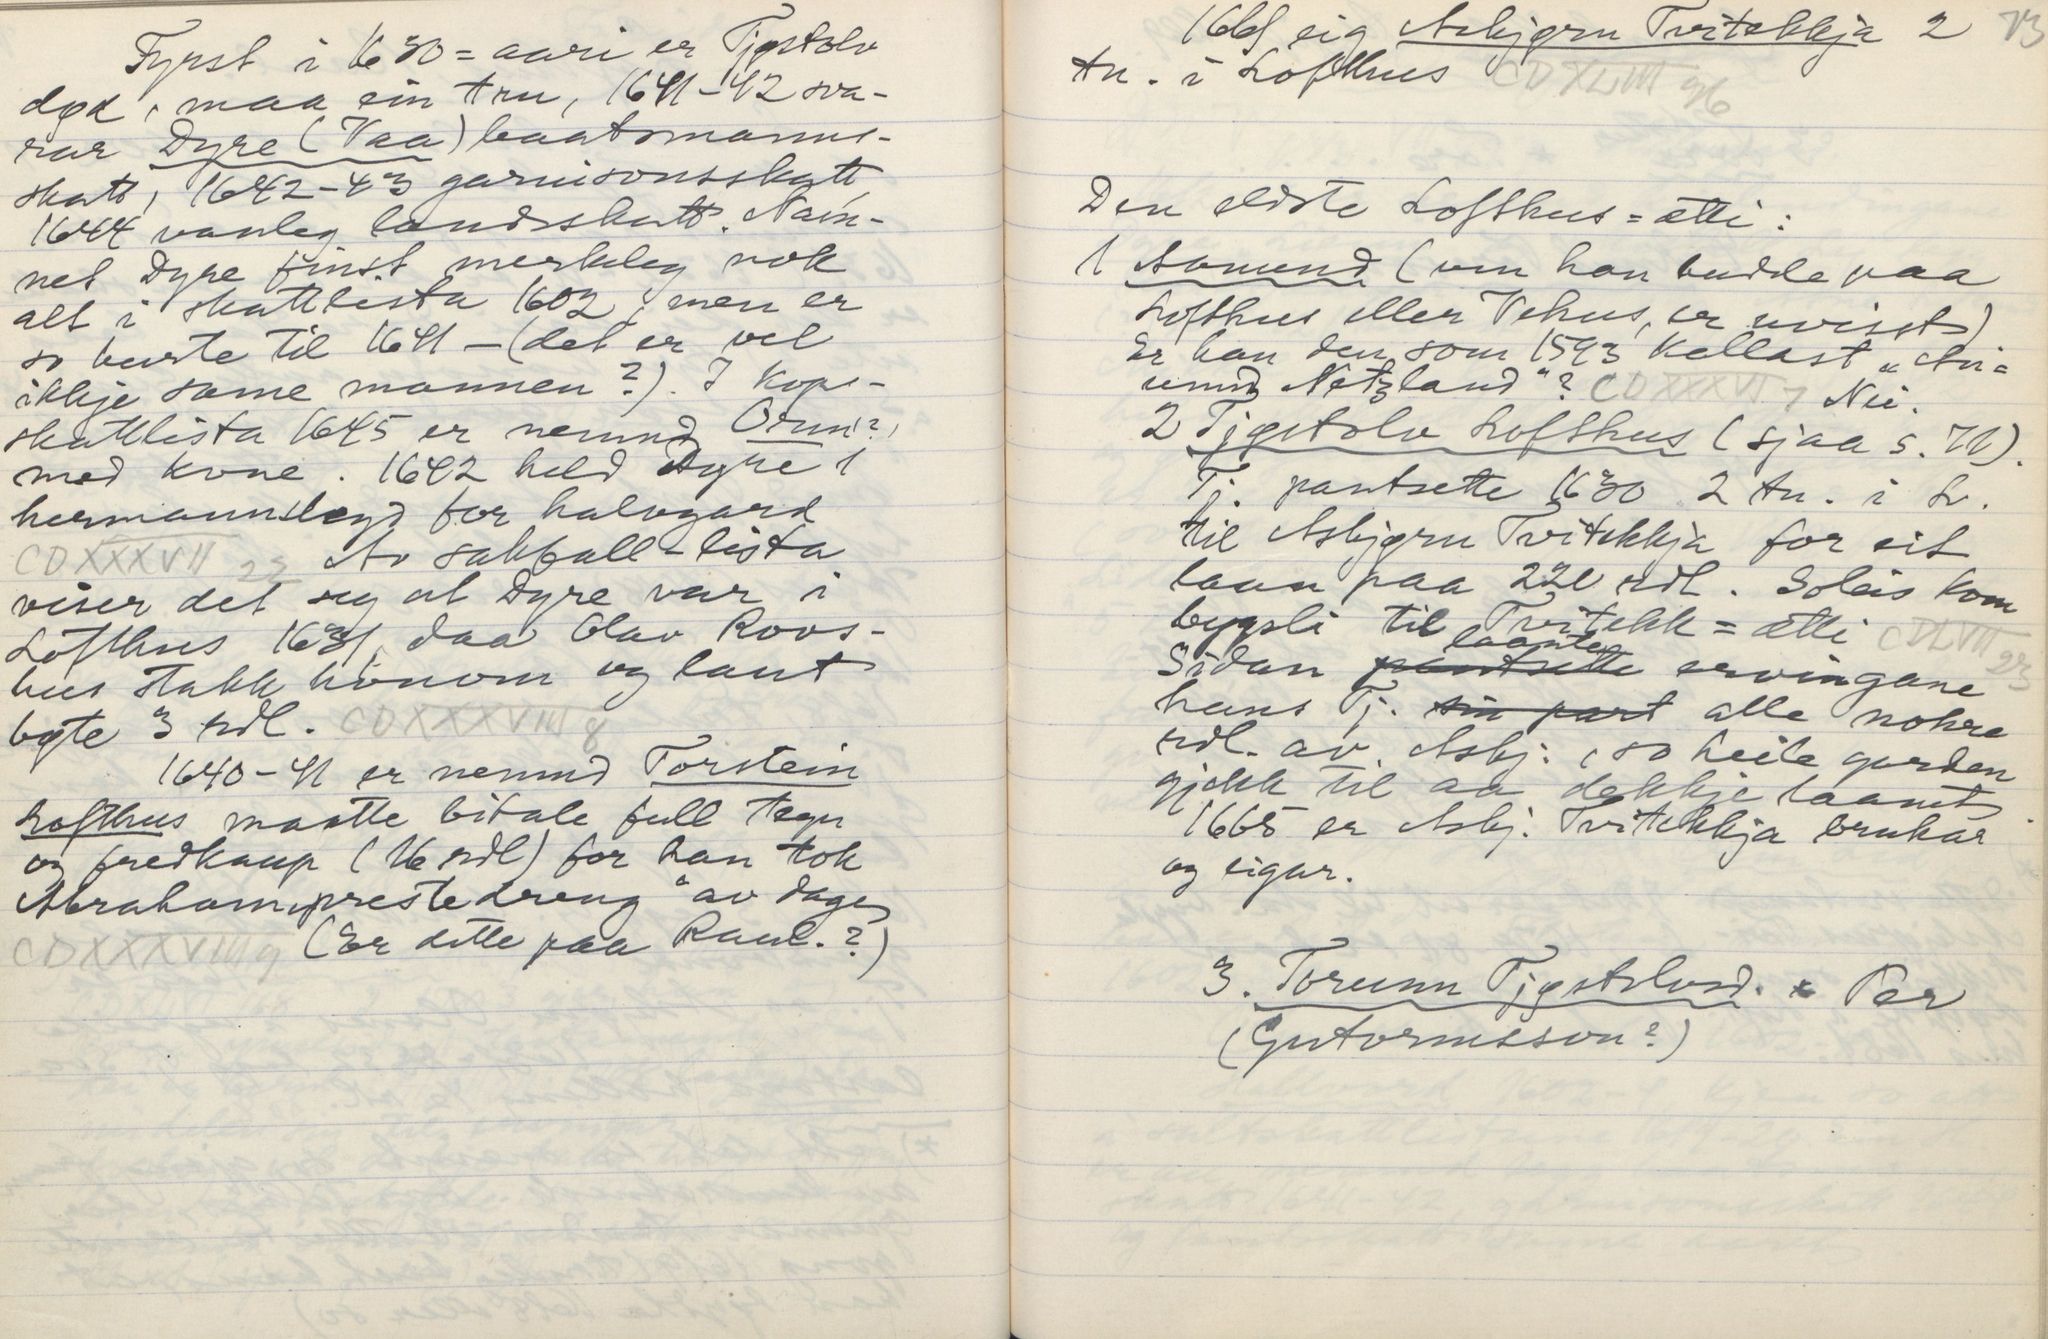 Fyrst i 1630-aari er Tjøstolv
død, maa ein tru, 1641-42 sva-
rar Dyre (Vaa) baatsmanns-
skatt, 1642-43 garnisonsskatt,
1644 vanleg landsskatt. Nam-
net Dyre finst merkeleg nok
alt i skattlista 1602, men er
so burte til 1641 - (det er vel
ikkje same mannen?). I kopp-
skattlista 1645 er nemnd Orm?,
med kone. 1642 held Dyre 1
hermannslegd for halvgard
CDXXXVII 22 Av sakfall-lista
viser det seg at Dyre var i
Lofthus 1631, daa Olav Roos-
hus stakk honom og laut
bøte 3 rdl. CDXXXVIII 8
1640-41 er nemnd Torstein
Lofthus maatte bitale full tegn
og fredkaup (16 rdl) for han tok
Abraham prestedreng "av dage"
CDXXXVIII 9 (Er dette paa Raul.?)
73
1661 eig Asbjørn Tvitekkja 2
tn. i Lofthus CDXLIII 96
Den eldste Lofthus-ætti:
1 Aamund (um han budde paa
Lofthus eller Vehus, er uvisst)
Er han den som 1593 kallast "Am-
und Netzland"? CDXXXVI 7 Nei.
2 Tjøstolv Lofthus (sjaa s. 71).
Tj. pantsette 1630 2 tn. i L.
til Asbjørn Tvitekkja for eit
laan paa 220 rdl. Soleis kom
bygsli til Tvitekk-ætti CDLVII 93
laante
Sidan pantsette ervingane
hans Tj. sin part alle nokre
rdl. av Asbj., so heile garden
gjekk til aa dekkje laanet
1665 er Asbj. Tvitekkja brukar
og eigar.
3. Torunn Tjøstolvsd. x Per
(Gutormsson?)